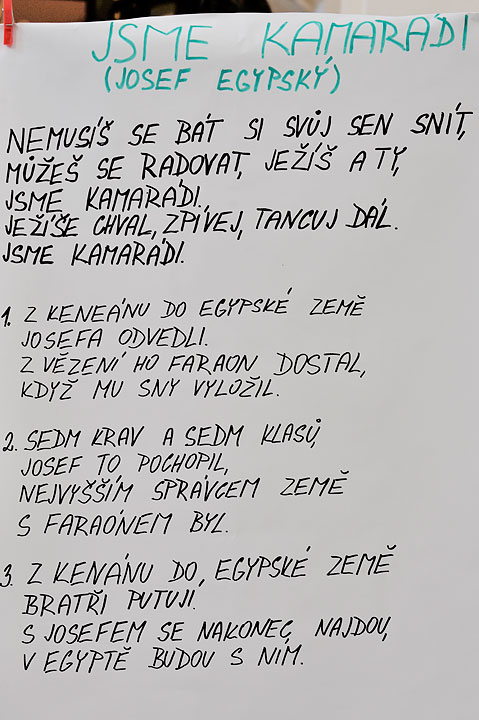 JSME KAMARÁDI
(JOSEF EGYPSKÝ)
NEMUSÍŠ SE BÁT SI SVŮJ SEN SNÍT,
MŮŽEŠ SE RADOVAT, JEŽÍŠ A TY,
JSME KAMARÁDI.,
JEŽÍŠE CHVAL, ZPÍVEJ, TANCUJ DÁL.
JSME KAMARÁDI.
1. Z KENEÁNU DO EGYPSKÉ ZEMĚ
JOSEFA ODVEDLI.
Z VĚZENÍ HO FARAON DOSTAL,
KDYŽ MU SNY VYLOŽIL.
2. SEDM KRAV A SEDM KLASŮ,
JOSEF TO POCHOPIL,
NEJVYŠŠÍM SPRÁVCEM ZEMĚ
S FARAÓNEM BYL.
3. Z KENÁNU DO, EGYPSKÉ ZEMĚ
BRATŘI PUTUJI.
S JOSEFEM SE NAKONEC, NAJDOU,
V EGYPTĚ BUDOU S NÍM.